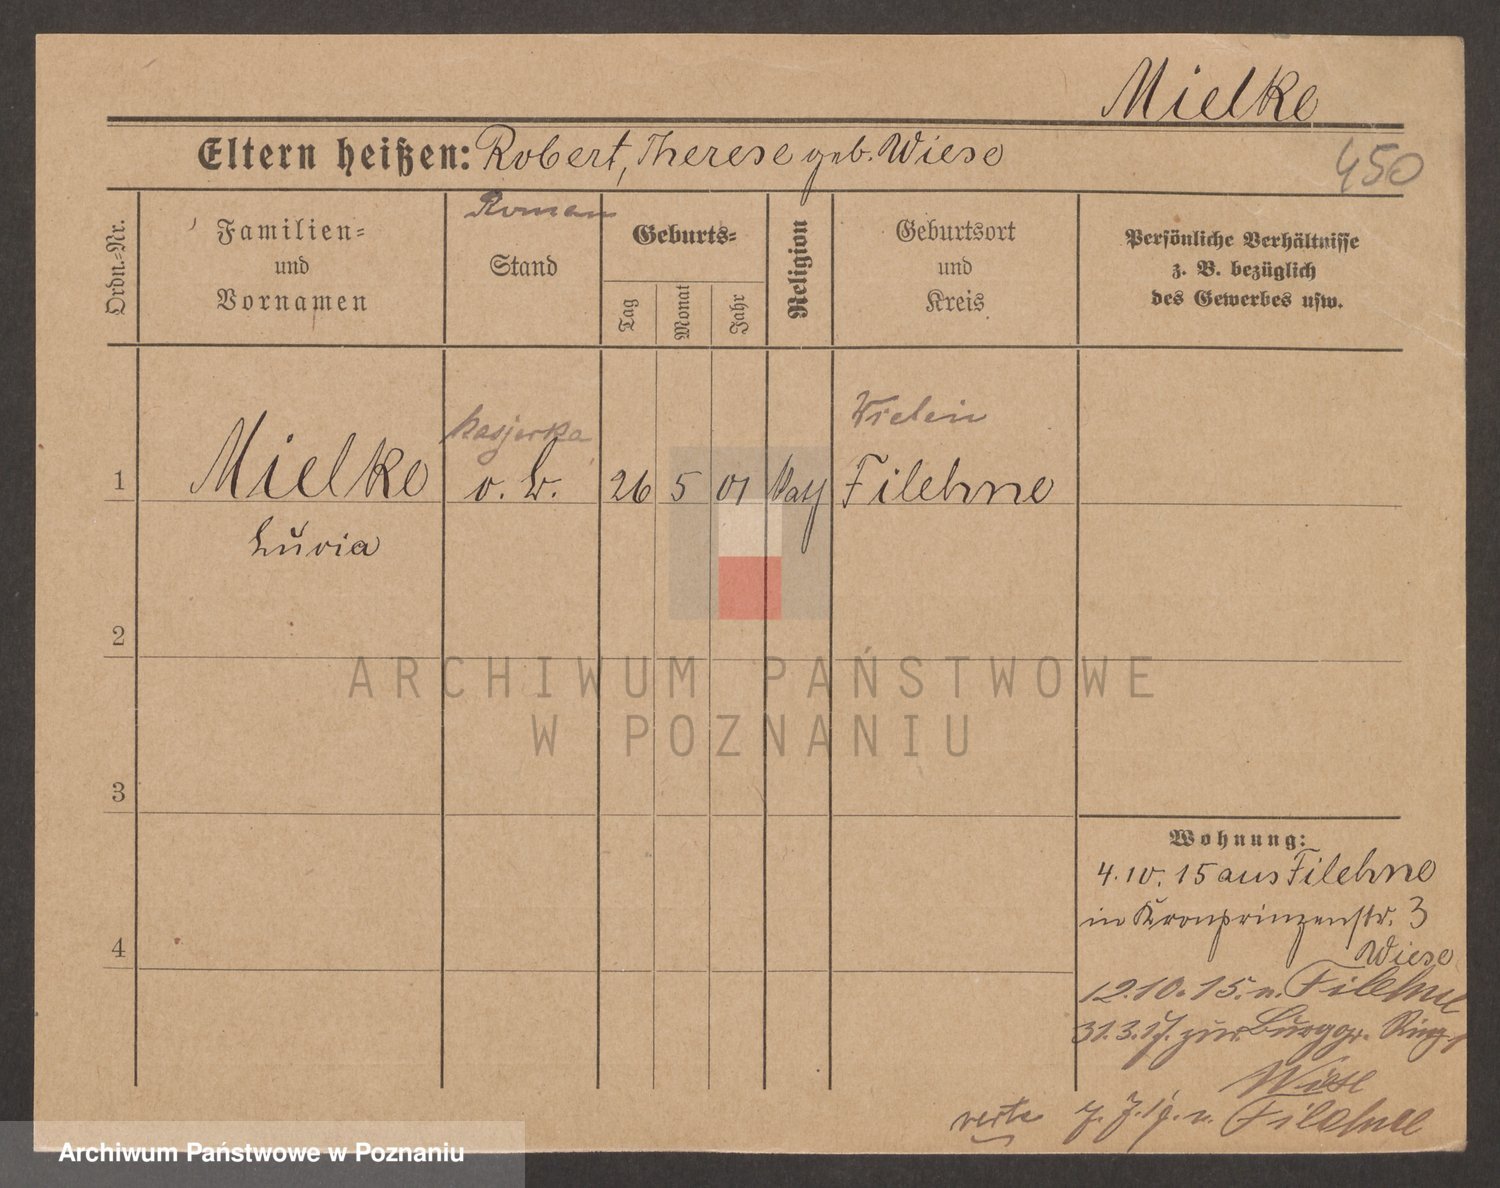 Mielke
Eltern heißen: Robert, Therese geb. Wiese
450
Roman
Ordn.-Nr.
Familien-
und
Vornamen
Stand
Geburts-
Tag
Monat
Jahr
Religion
Geburtsort
und
Kreis
Persönliche Verhältnisse
z. B. bezüglich
des Gewerbes usw.
kasjerka
Wieleń
1 Mielke o. B. 26 5 01 kath Filehne
2
3
4
Wohnung:
4. 10. 15 aus Filehne
in Kronprinzenstr. 3
Wiese
12. 10. 15. n. Filehne
31. 3. 17. zur. Burggr. Ring 1
Wiese
n. Filehne
verte
ARCHIWUM PAŃSTWOWE
W POZNANIU
Archiwum Państwowe w Poznaniu